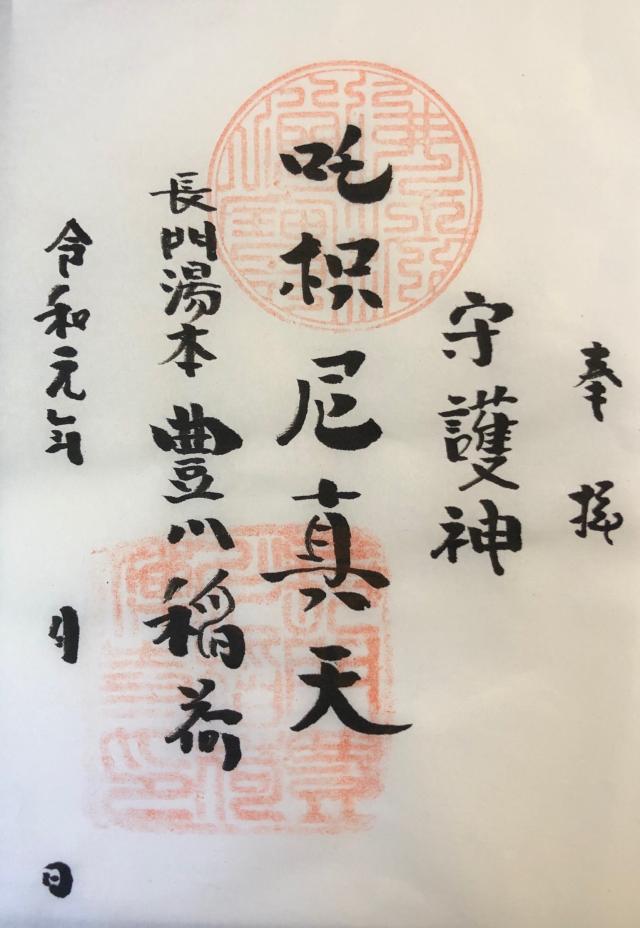 奉拝
守護神
吒枳尼真天
長門湯本 豊川稲荷
令和元年 月 日